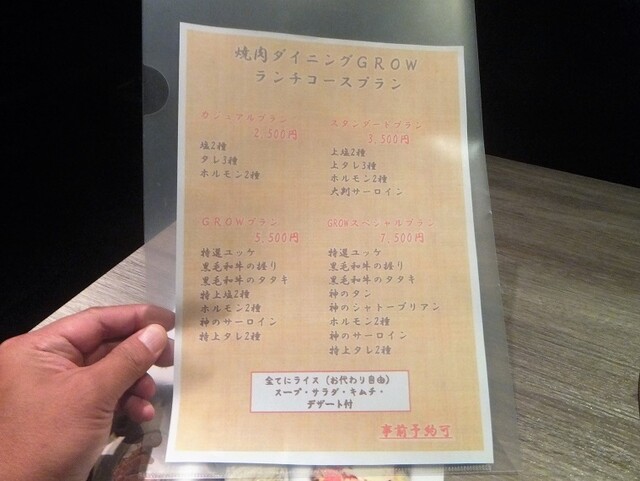 焼肉ダイニングGROW
ランチコースプラン
カジュアルプラン
2,500円
塩2種
タレ3種
ホルモン2種
スタンダードプラン
3,500円
上塩2種
上タレ3種
ホルモン2種
大判サーロイン
GROWプラン
5,500円
特選ユッケ
黒毛和牛の握り
黒毛和牛のタタキ
特上塩2種
ホルモン2種
神のサーロイン
特上タレ2種
GROWスペシャルプラン
7,500円
特選ユッケ
黒毛和牛の握り
黒毛和牛のタタキ
神のタン
神のシャトーブリアン
ホルモン2種
神のサーロイン
特上タレ2種
全てにライス（お代わり自由）
スープ・サラダ・キムチ・
デザート付
事前予約可